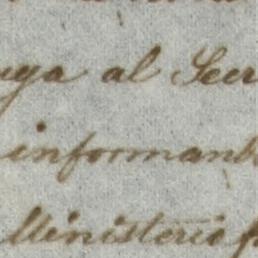 uya al Secr
informand
Ministerio p